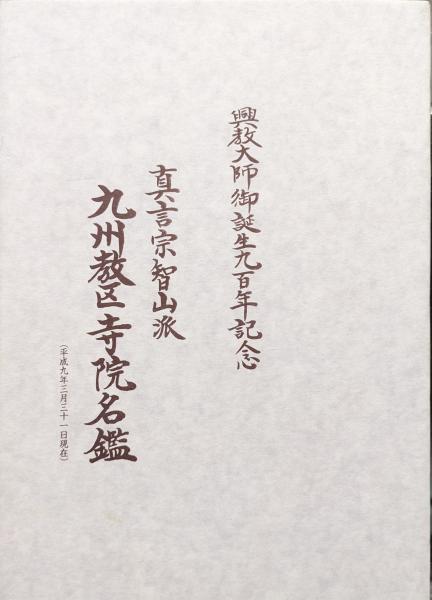 興教大師御誕生九百年記念
真言宗智山派
九州教区寺院名鑑
(平成九年三月三十一日現在)